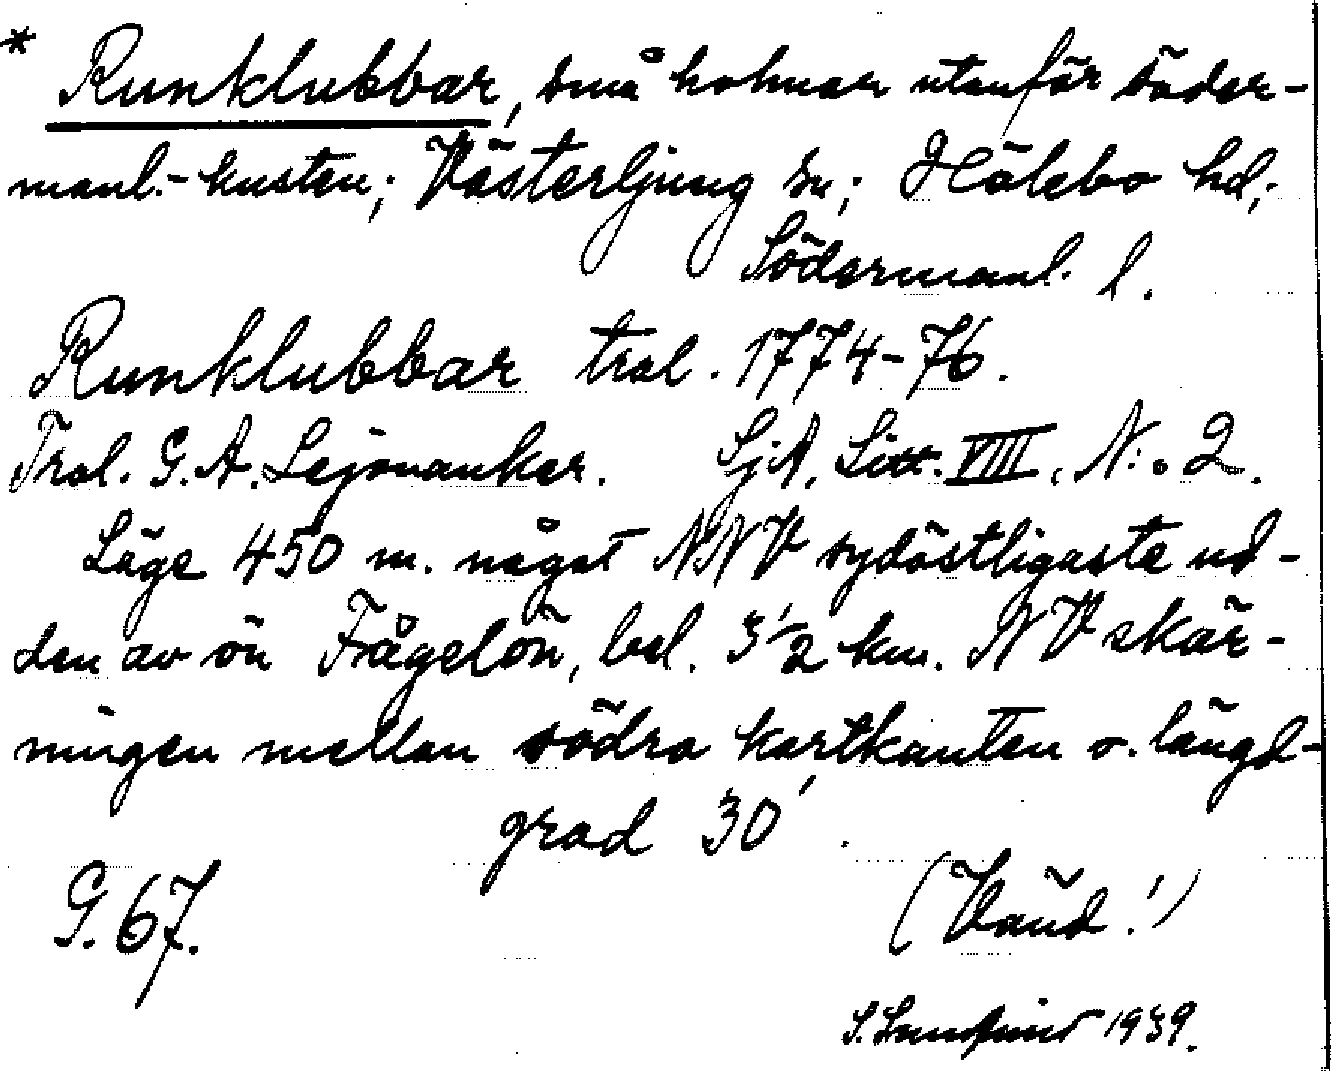 * Runklubbar, små holmar utanför söder-
manl.-kusten; Västerljung sn; Hölebo hd;
Södermanl. l.
Runklubbar tral. 1774-76.
Tral. G. A. Lejonanker. SjA. Litt. VIII. N:o 2.
Läge 450 m. något NNV sydöstligaste ud-
den av ön Fågelön, bel. 3 1/2 km. NV skär-
ningen mellan södra kartkanten o. längd-
grad 30'.
G. 67. (Vänd!)
S. 1939.